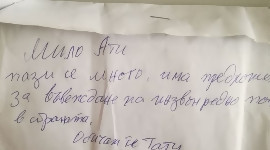 Мило Ати
пази се много, има предложе
за въвеждане на извънредно пол
в страната.
Обичам те Тати